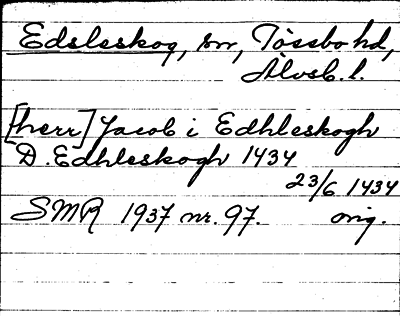 Edsleskog, sn, Tössbo hd,
Älvsb. l.
[herr] Jacob i Edhleskogh
D. Edhleskogh 1434
23/6 1434
SMR 1937 nr. 97. orig.